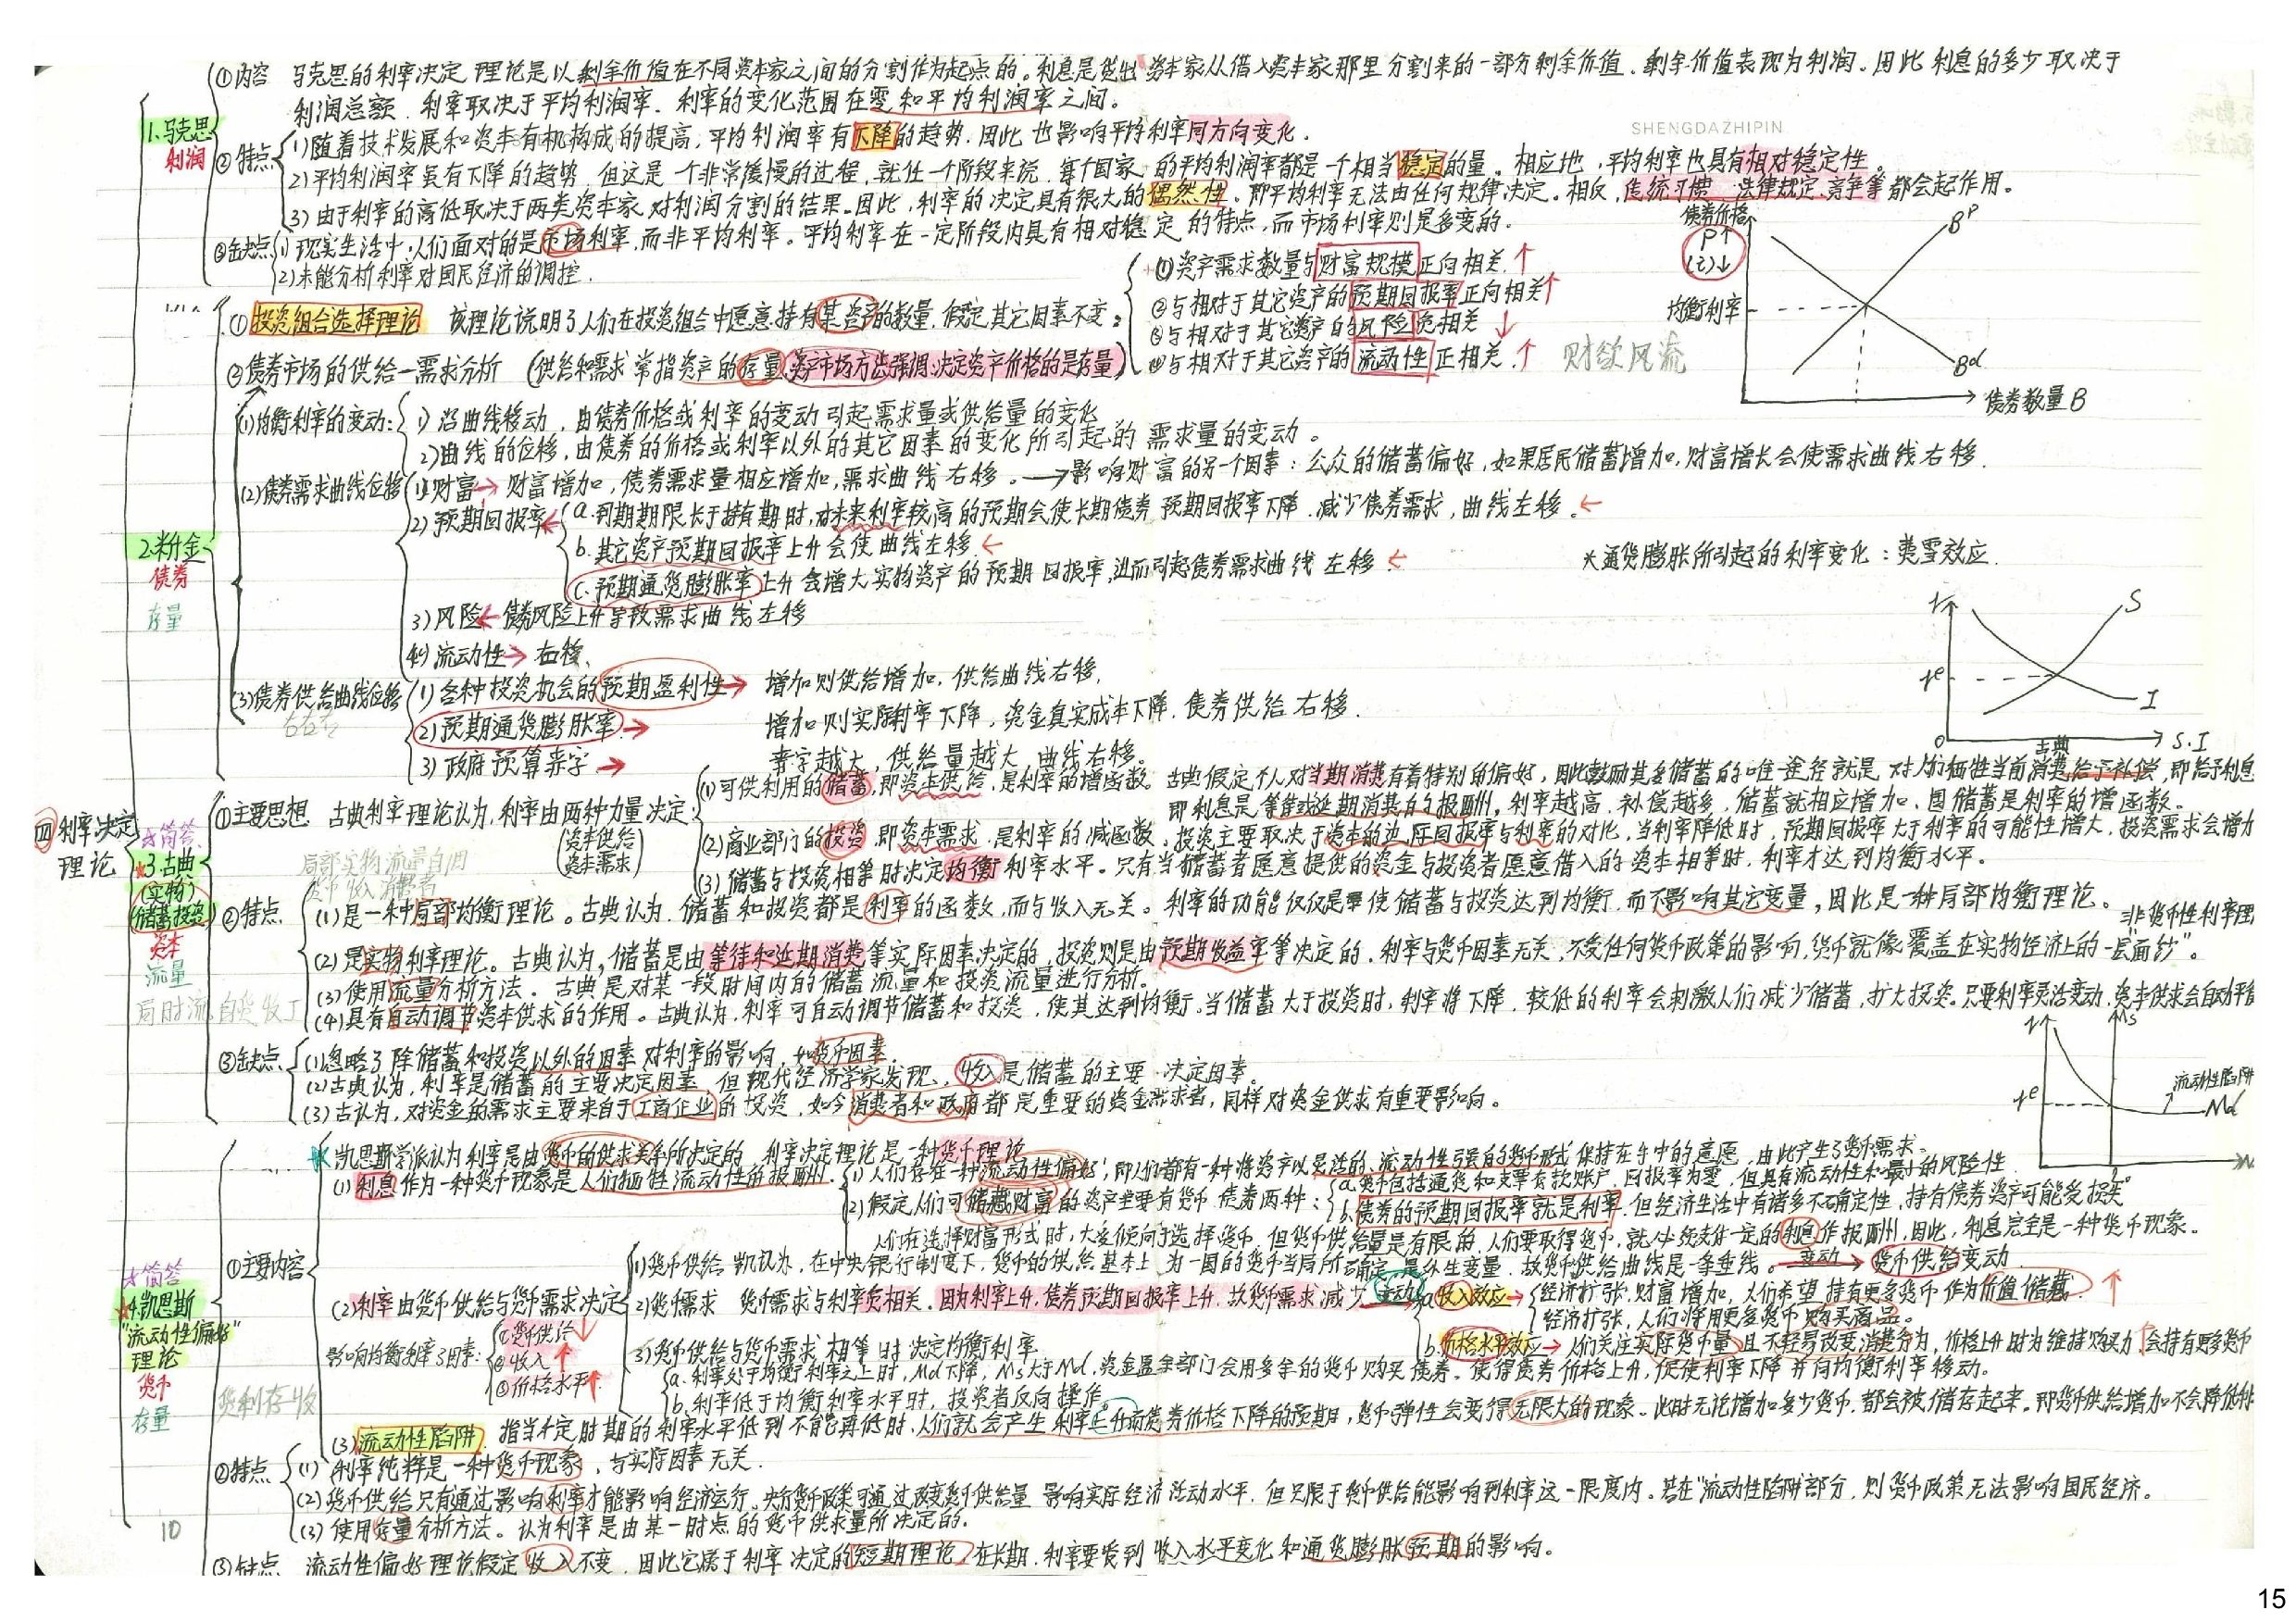 四 利率决定理论
1.马克思
利润
①内容 马克思的利率决定理论是以剩余价值在不同资本家之间的分割作为起点的。利息是贷出资本家从借入资本家那里分割来的一部分剩余价值。剩余价值表现为利润。因此利息的多少取决于
利润总额,利率取决于平均利润率。利率的变化范围在零和平均利润率之间。
②特点
1)随着技术发展和资本有机构成的提高,平均利润率有下降的趋势,因此也影响平均利率同方向变化。
2)平均利润率虽有下降的趋势,但这是一个非常缓慢的过程,就任一个阶段来说,每个国家的平均利润率都是一个相当稳定的量。相应地,平均利率也具有相对稳定性。
3)由于利率的高低取决于两类资本家对利润分割的结果。因此,利率的决定具有很大的偶然性。即平均利率无法由任何规律决定。相反,传统习惯、法律规定、竞争等都会起作用。
③缺点
1)现实生活中,人们面对的是市场利率,而非平均利率。平均利率在一定阶段内具有相对稳定的特点,而市场利率则是多变的。
2)未能分析利率对国民经济的调控。
SHENGDAZHIPIN
债券价格
P↑
(i)↓
均衡利率
B^P
Bd
债券数量B
2.
债券
存量
①投资组合选择理论 该理论说明了人们在投资组合中愿意持有某资产的数量,假定其它因素不变:
①资产需求数量与财富规模正向相关↑
②与相对于其它资产的预期回报率正向相关↑
③与相对于其它资产的风险负相关↓
④与相对于其它资产的流动性正相关↑
财欲风流
②债券市场的供给—需求分析 (供给和需求常指资产的存量,资产市场方法强调:决定资产价格的是存量)
(1)均衡利率的变动:
1)沿曲线移动,由债券价格或利率的变动引起需求量或供给量的变化
2)曲线的位移,由债券的价格或利率以外的其它因素的变化所引起的需求量的变动。
(2)债券需求曲线位移
1)财富→ 财富增加,债券需求量相应增加,需求曲线右移。→影响财富的另一个因素:公众的储蓄偏好,如果居民储蓄增加,财富增长会使需求曲线右移
2)预期回报率←
a.到期期限长于持有期时,对未来利率较高的预期会使长期债券预期回报率下降,减少债券需求,曲线左移。←
b.其它资产预期回报率上升会使曲线左移←
c.预期通货膨胀率上升会增大实物资产的预期回报率,进而引起债券需求曲线左移←
大通货膨胀所引起的利率变化:费雪效应
3)风险← 债券风险上升导致需求曲线左移
4)流动性→ 右移
(3)债券供给曲线位移
右右右
(1)各种投资机会的预期盈利性→ 增加则供给增加,供给曲线右移。
2)预期通货膨胀率→ 增加则实际利率下降,资金真实成本下降,债券供给右移。
3)政府预算赤字→ 赤字越大,供给量越大,曲线右移。
r
S
re
I
0
古典
S.I
☆简答
★3.古典
(实物)
(储蓄投资)
资本
流量
局时流自货收工
①主要思想 古典利率理论认为,利率由两种力量决定
(资本供给
资本需求)
(1)可供利用的储蓄,即资本供给,是利率的增函数。古典假定个人对当期消费有着特别的偏好,因此鼓励其多储蓄的唯一途径就是对人们牺牲当前消费给予补偿,即给予利息
即利息是等待或延期消费的报酬。利率越高,补偿越多,储蓄就相应增加,因储蓄是利率的增函数。
(2)商业部门的投资,即资本需求,是利率的减函数。投资主要取决于资本的边际回报率与利率的对比,当利率降低时,预期回报率大于利率的可能性增大,投资需求会增加
(3)储蓄与投资相等时决定均衡利率水平。只有当储蓄者愿意提供的资金与投资者愿意借入的资本相等时,利率才达到均衡水平。
局部实物流量自调
货币收入消费者
②特点
(1)是一种局部均衡理论。古典认为,储蓄和投资都是利率的函数,而与收入无关。利率的功能仅仅是使储蓄与投资达到均衡,而不影响其它变量,因此是一种局部均衡理论。
非货币性利率理
(2)是实物利率理论。古典认为,储蓄是由等待和延期消费等实际因素决定的,投资则是由预期收益率等决定的,利率与货币因素无关,不受任何货币政策的影响,货币就像覆盖在实物经济上的一层"面纱"。
(3)使用流量分析方法。古典是对某一段时间内的储蓄流量和投资流量进行分析。
(4)具有自动调节资本供求的作用。古典认为,利率可自动调节储蓄和投资,使其达到均衡。当储蓄大于投资时,利率将下降,较低的利率会刺激人们减少储蓄,扩大投资。只要利率灵活变动,资本供求会自动平衡
③缺点
(1)忽略了除储蓄和投资以外的因素对利率的影响,如货币因素。
(2)古典认为,利率是储蓄的主要决定因素,但现代经济学家发现,收入是储蓄的主要决定因素。
(3)古认为,对资金的需求主要来自于工商企业的投资,如今消费者和政府都是重要的资金需求者,同样对资金供求有重要影响。
r
Ms
re
流动性陷阱
Md
☆简答
★4.凯恩斯
"流动性偏好"
理论
货币
存量
货利存收
①主要内容
凯恩斯学派认为利率是由货币的供求关系所决定的,利率决定理论是一种货币理论
(1)利息作为一种货币现象是人们牺牲流动性的报酬
1)人们存在一种"流动性偏好",即人们都有一种将资产以灵活的、流动性强的货币形式保持在手中的意愿,由此产生了货币需求。
2)假定人们可储藏财富的资产主要有货币、债券两种:
a.货币包括通货和支票存款账户,回报率为零,但具有流动性和最小的风险性
b.债券的预期回报率就是利率,但经济生活中有诸多不确定性,持有债券资产可能受损失
人们在选择财富形式时,大多倾向于选择货币,但货币供给量是有限的,人们要取得货币,就必须支付一定的利息作报酬,因此,利息完全是一种货币现象。
(2)利率由货币供给与货币需求决定
影响均衡利率3因素:
①货币供给↓
②收入↑
③价格水平↑
1)货币供给 凯认为,在中央银行制度下,货币的供给基本上为一国的货币当局所确定,是外生变量,故货币供给曲线是一条垂线。变动→货币供给变动
2)货币需求 货币需求与利率负相关。因为利率上升,债券预期回报率上升,故货币需求减少。变动→
a.收入效应→
经济扩张,财富增加,人们希望持有更多货币作为价值储藏 ↑
经济扩张,人们将用更多货币购买商品。
b.价格水平效应→ 人们关注实际货币量,且不轻易改变消费行为,价格上升时为维持购买力,会持有更多货币
3)货币供给与货币需求相等时决定均衡利率
a.利率处于均衡利率之上时,Md下降,Ms大于Md,资金盈余部门会用多余的货币购买债券,使得债券价格上升,促使利率下降并向均衡利率移动。
b.利率低于均衡利率水平时,投资者反向操作。
(3)流动性陷阱 指当一定时期的利率水平低到不能再低时,人们就会产生利率上升而债券价格下降的预期,货币弹性会变得无限大的现象。此时无论增加多少货币,都会被储存起来,即货币供给增加不会降低利
②特点
(1)利率纯粹是一种货币现象,与实际因素无关。
(2)货币供给只有通过影响利率才能影响经济运行。央行货币政策可通过改变货币供给量影响实际经济活动水平,但只限于货币供给能影响到利率这一限度内。若在"流动性陷阱"部分,则货币政策无法影响国民经济。
(3)使用存量分析方法。认为利率是由某一时点的货币供求量所决定的。
10
③缺点 流动性偏好理论假定收入不变,因此它属于利率决定的短期理论,在长期,利率要受到收入水平变化和通货膨胀预期的影响。
15